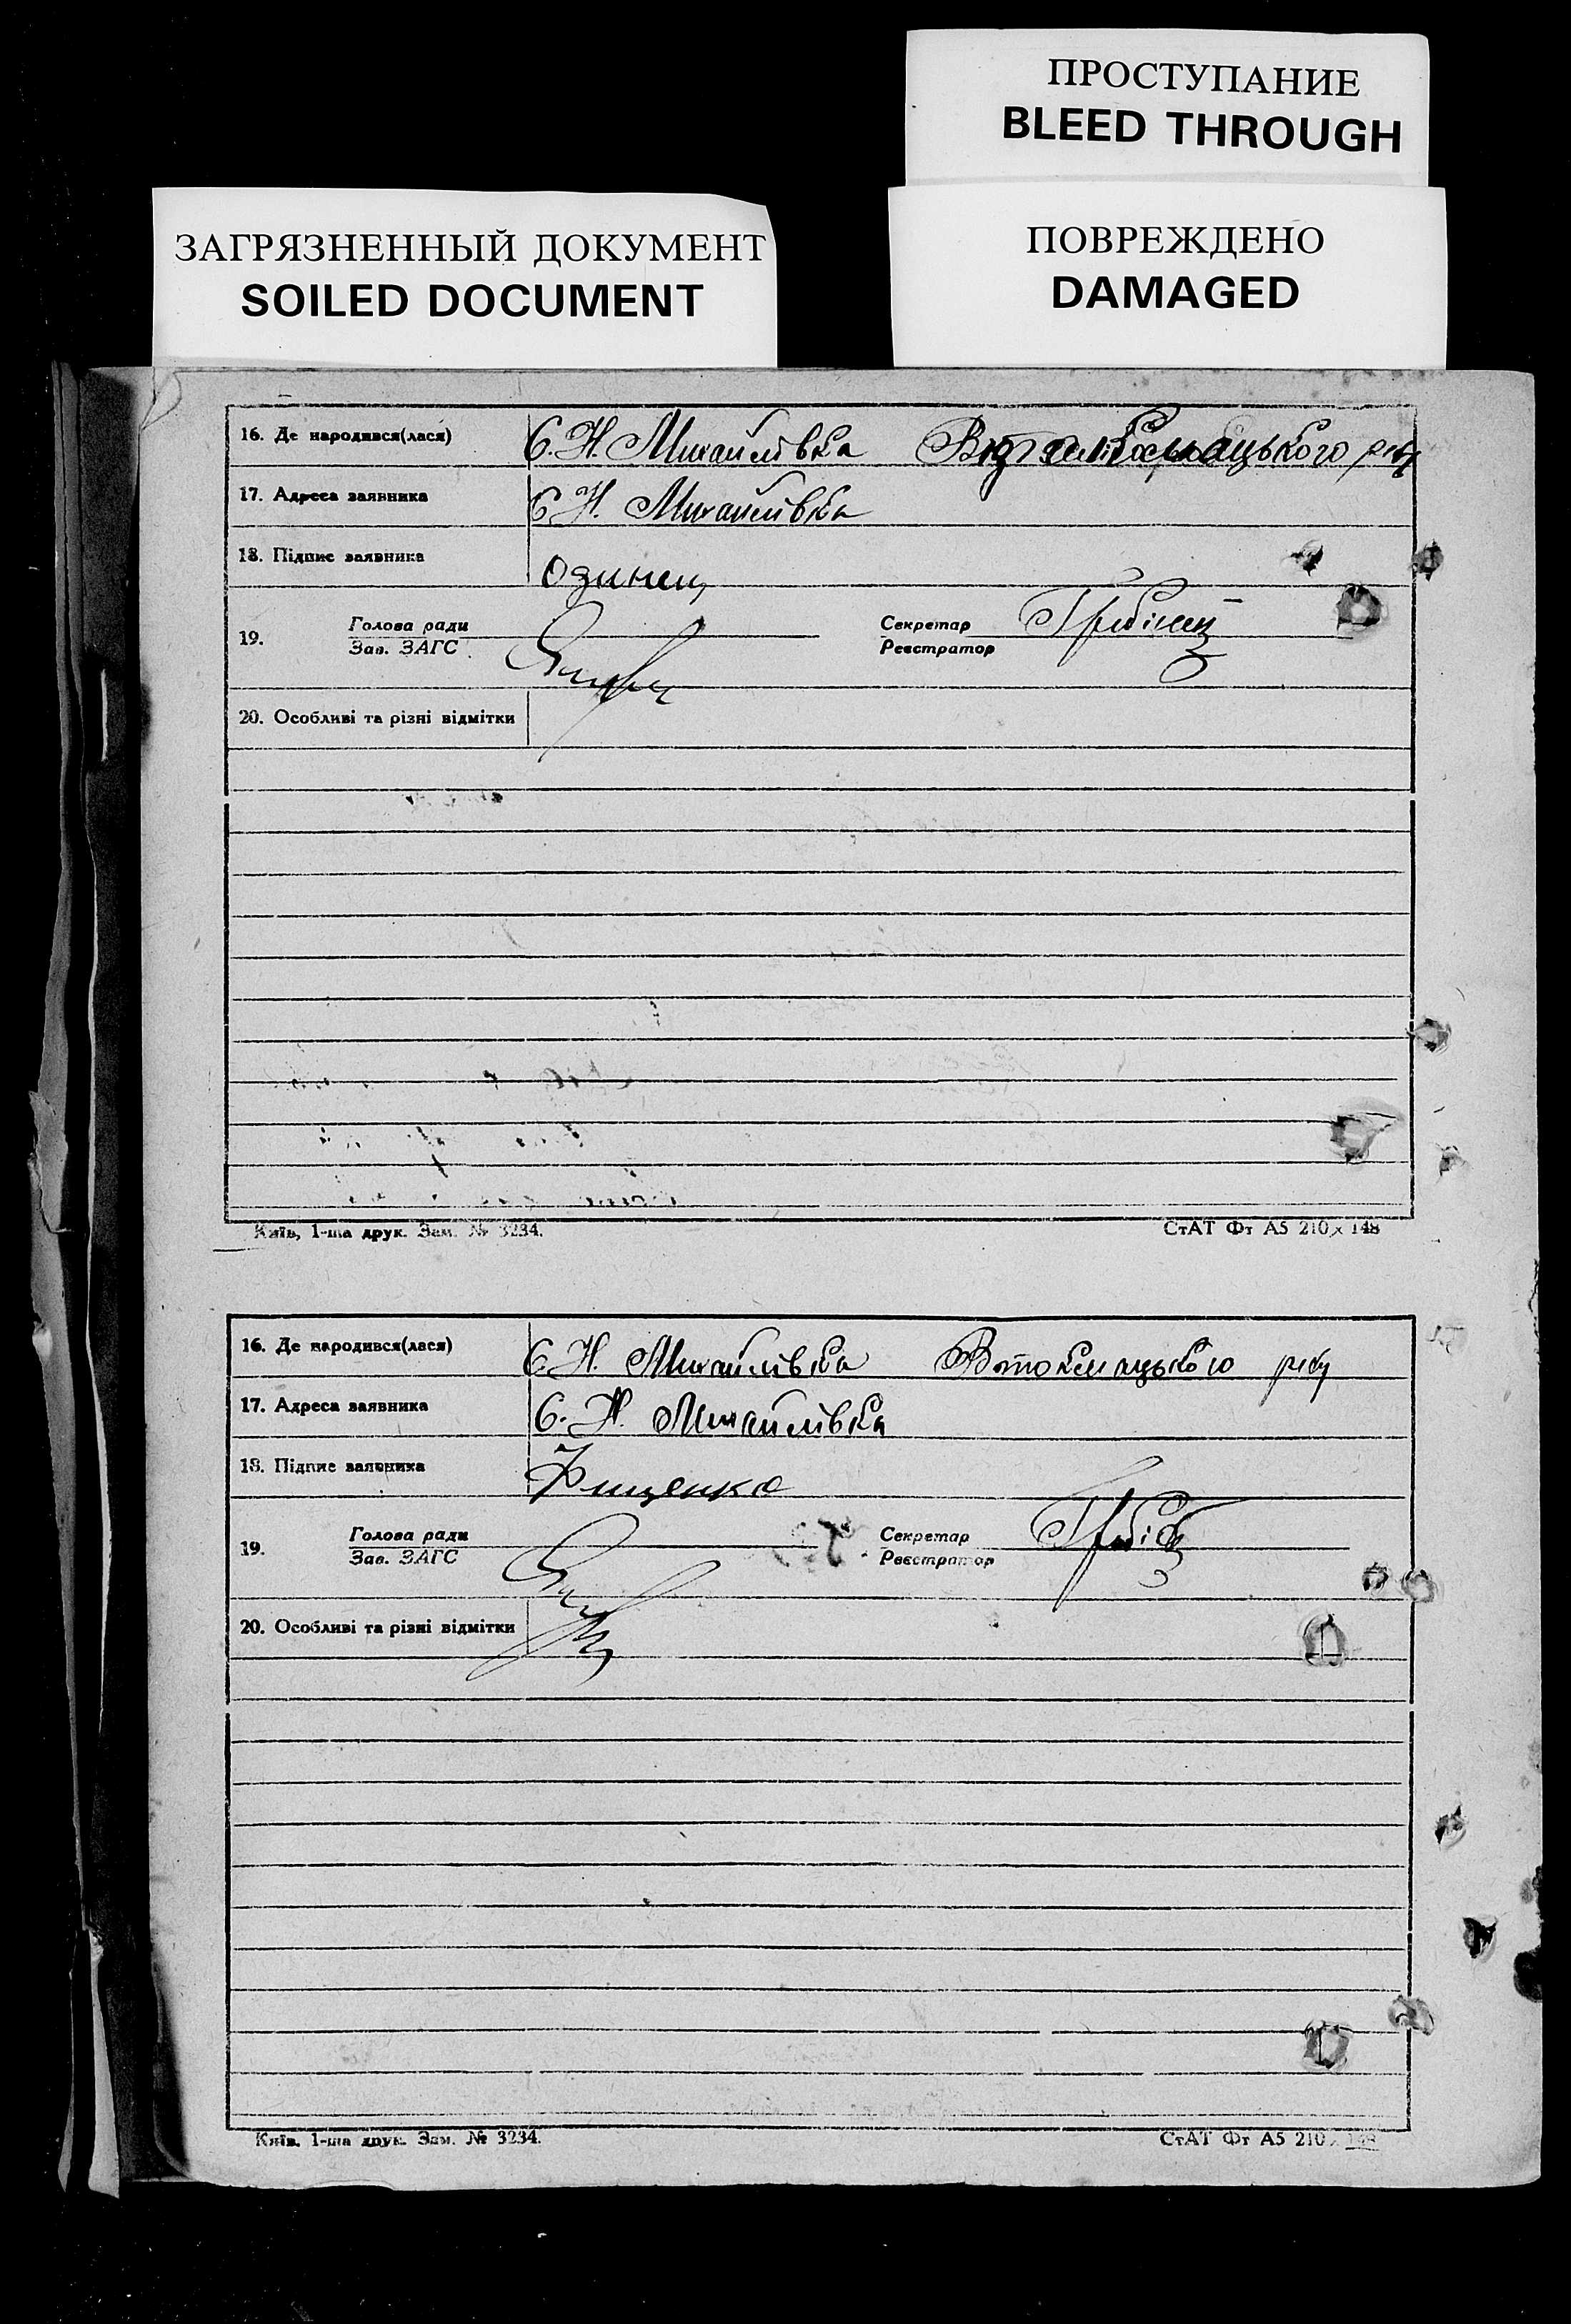 ПРОСТУПАНИЕ
BLEED THROUGH
ЗАГРЯЗНЕННЫЙ ДОКУМЕНТ
SOILED DOCUMENT
ПОВРЕЖДЕНО
DAMAGED
16. Де народився(лася) С. Н. Михайлівка
17. Адреса заявника С Н. Михайлівка
18. Підпис заявника Одинец
19. Голова ради Секретар
Зав. ЗАГС Реєстратор
20. Особливі та різні відмітки
Київ, 1-ша друк. Зам. № 3234. СтАТ Фт А5 210 x 148
16. Де народився(лася) С Н. Михайлівка Втокмацького р-ну
17. Адреса заявника С. Н. Михайлівка
18. Підпис заявника Фищенко
19. Голова ради Секретар
Зав. ЗАГС Реєстратор
20. Особливі та різні відмітки
Київ. 1-ша друк. Зам. № 3234. СтАТ Фт А5 210 x 148